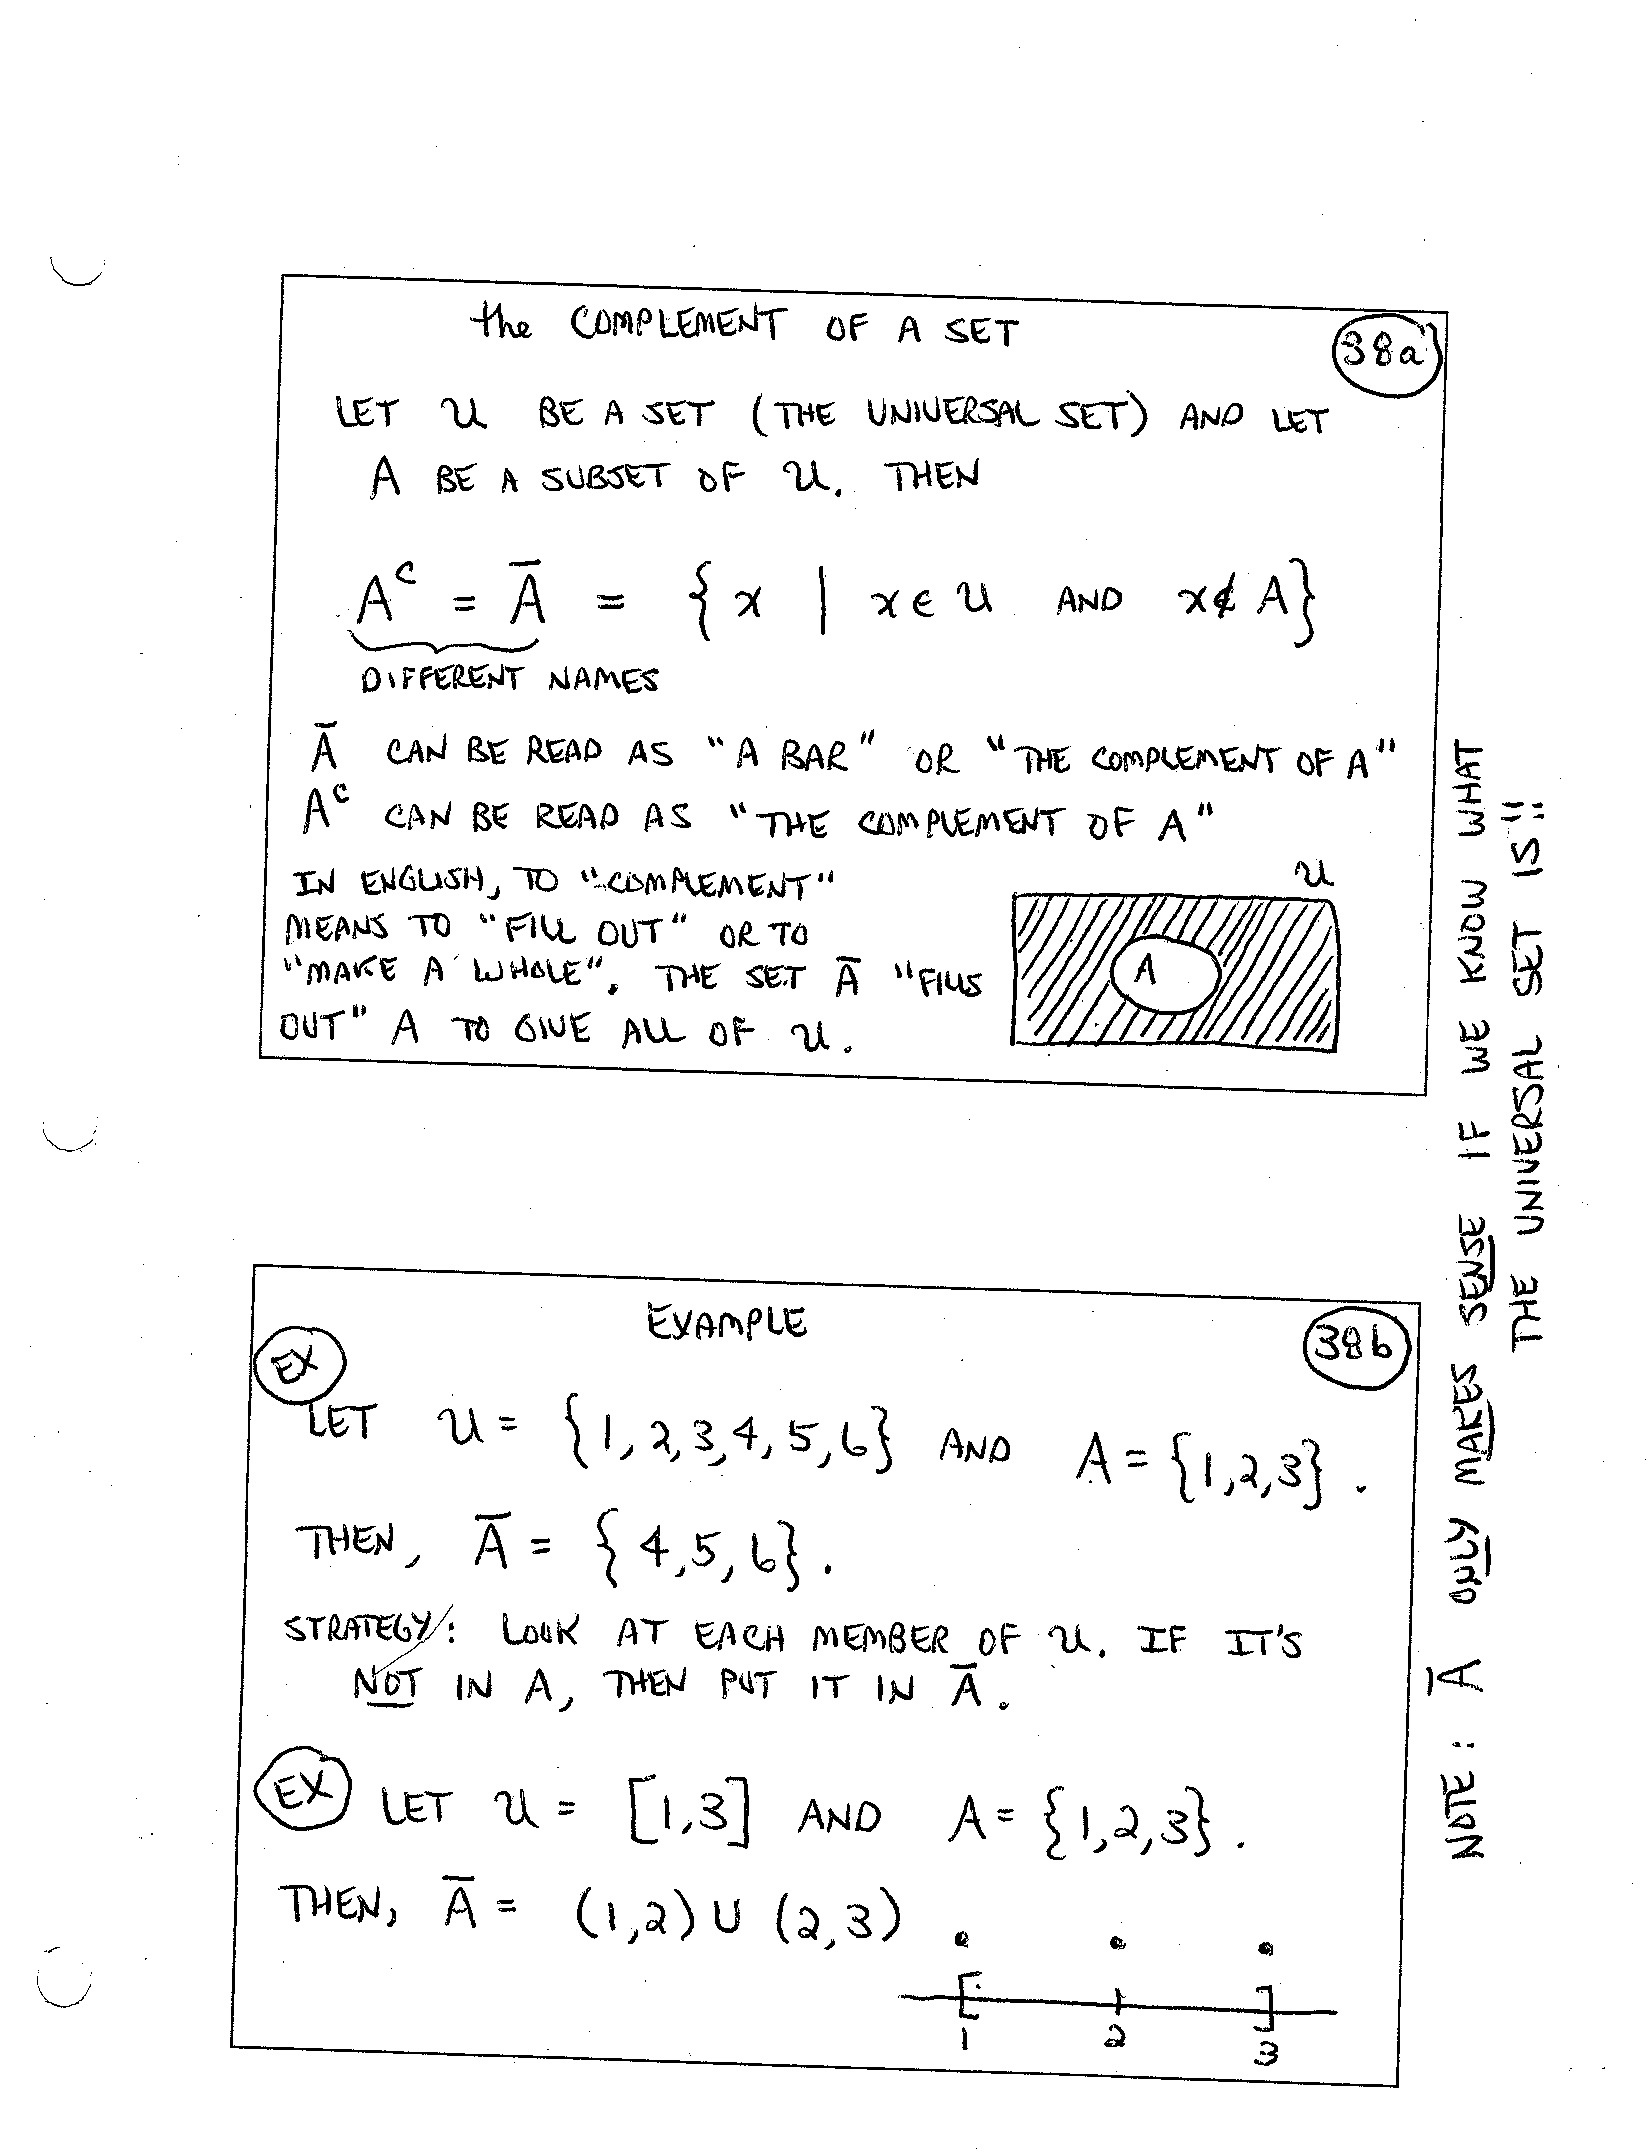 the COMPLEMENT OF A SET
38a
LET U BE A SET (THE UNIVERSAL SET) AND LET
A BE A SUBSET OF U. THEN
Aᶜ = Ā = {x | x∈U AND x∉A}
DIFFERENT NAMES
Ā CAN BE READ AS "A BAR" OR "THE COMPLEMENT OF A"
Aᶜ CAN BE READ AS "THE COMPLEMENT OF A"
IN ENGLISH, TO "COMPLEMENT"
MEANS TO "FILL OUT" OR TO
"MAKE A WHOLE". THE SET Ā "FILLS
OUT" A TO GIVE ALL OF U.
U
A
NOTE: Ā ONLY MAKES SENSE IF WE KNOW WHAT
THE UNIVERSAL SET IS!!
EXAMPLE
38b
EX
LET U = {1,2,3,4,5,6} AND A = {1,2,3}.
THEN, Ā = {4,5,6}.
STRATEGY: LOOK AT EACH MEMBER OF U. IF IT'S
NOT IN A, THEN PUT IT IN Ā.
EX LET U = [1,3] AND A = {1,2,3}.
THEN, Ā = (1,2) ∪ (2,3)
[ ]
1 2 3